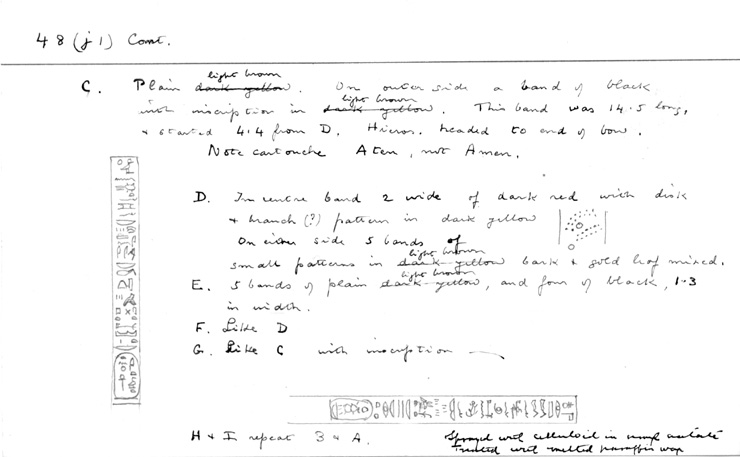 48 (j 1) Cont.
light brown
C. Plain dark yellow. On outer side a band of black
light brown
with inscription in dark yellow. This band was 14·5 long,
& started 4·4 from D. Hieros. headed to end of bow.
Note cartouche Aten, not Amen.
D. In centre band 2 wide of dark red with disk
& branch (?) pattern in dark yellow
On either side 5 bands of
light brown
small patterns in dark yellow bark & gold leaf mixed.
light brown
E. 5 bands of plain dark yellow, and four of black, 1·3
in width.
F. Like D
G. Like C with inscription
H & I repeat B & A.
Sprayed with celluloid in amyl acetate
Treated with melted paraffin wax